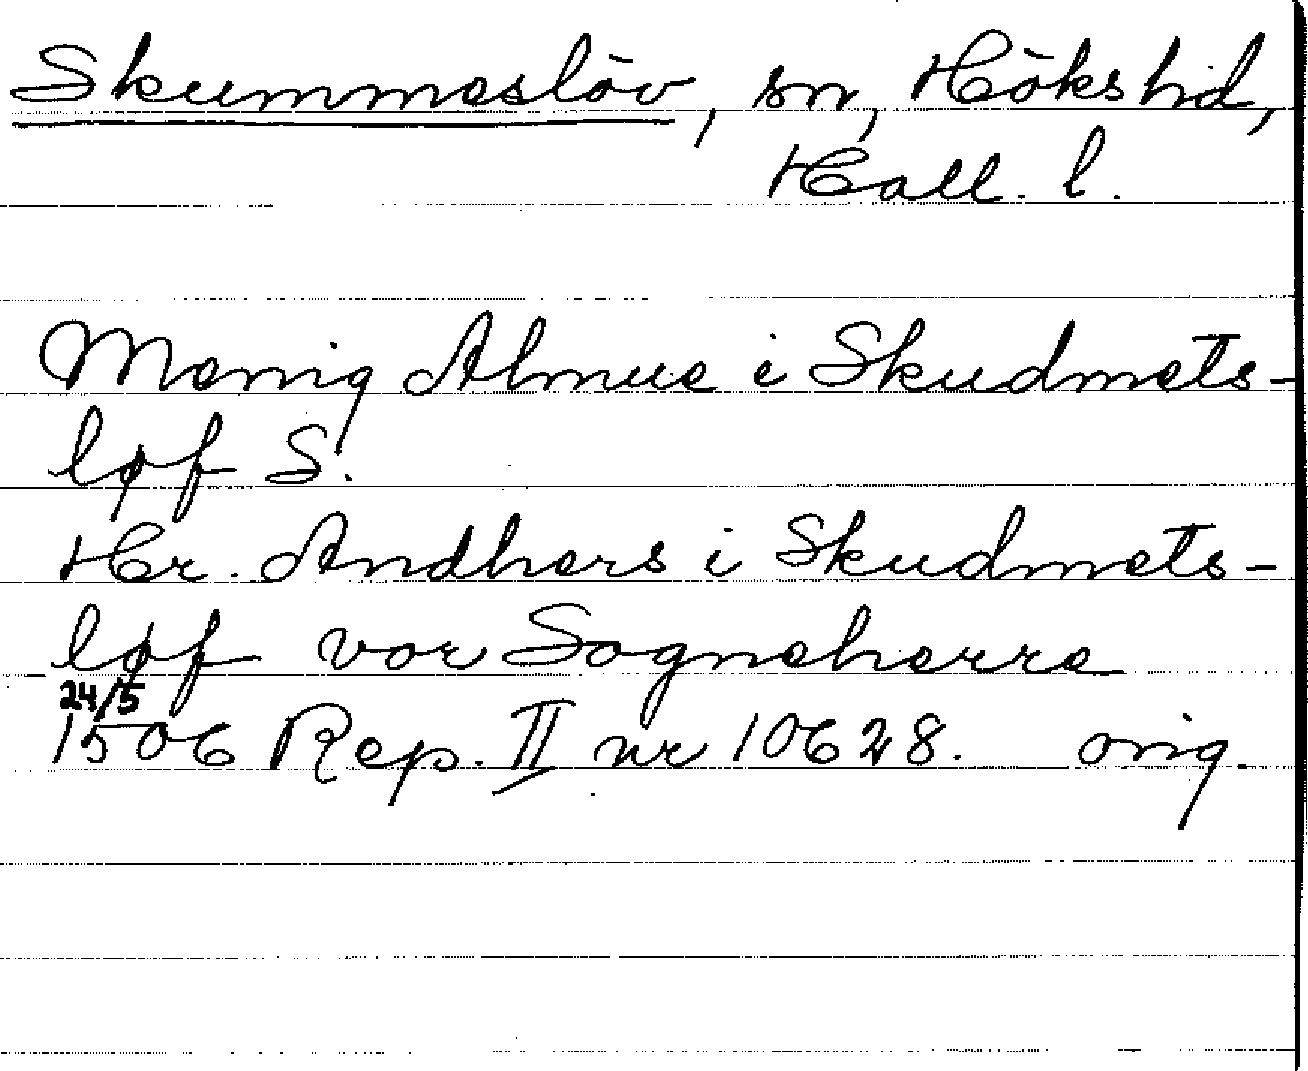 Skummeslöv, sn, Höks hd,
Hall. l.
Menig Almue i Skudmets-
løf S.
Hr. Andhers i Skudmets-
løf vor Sogneherre
24/5
1506 Rep. II nr 10628. orig.